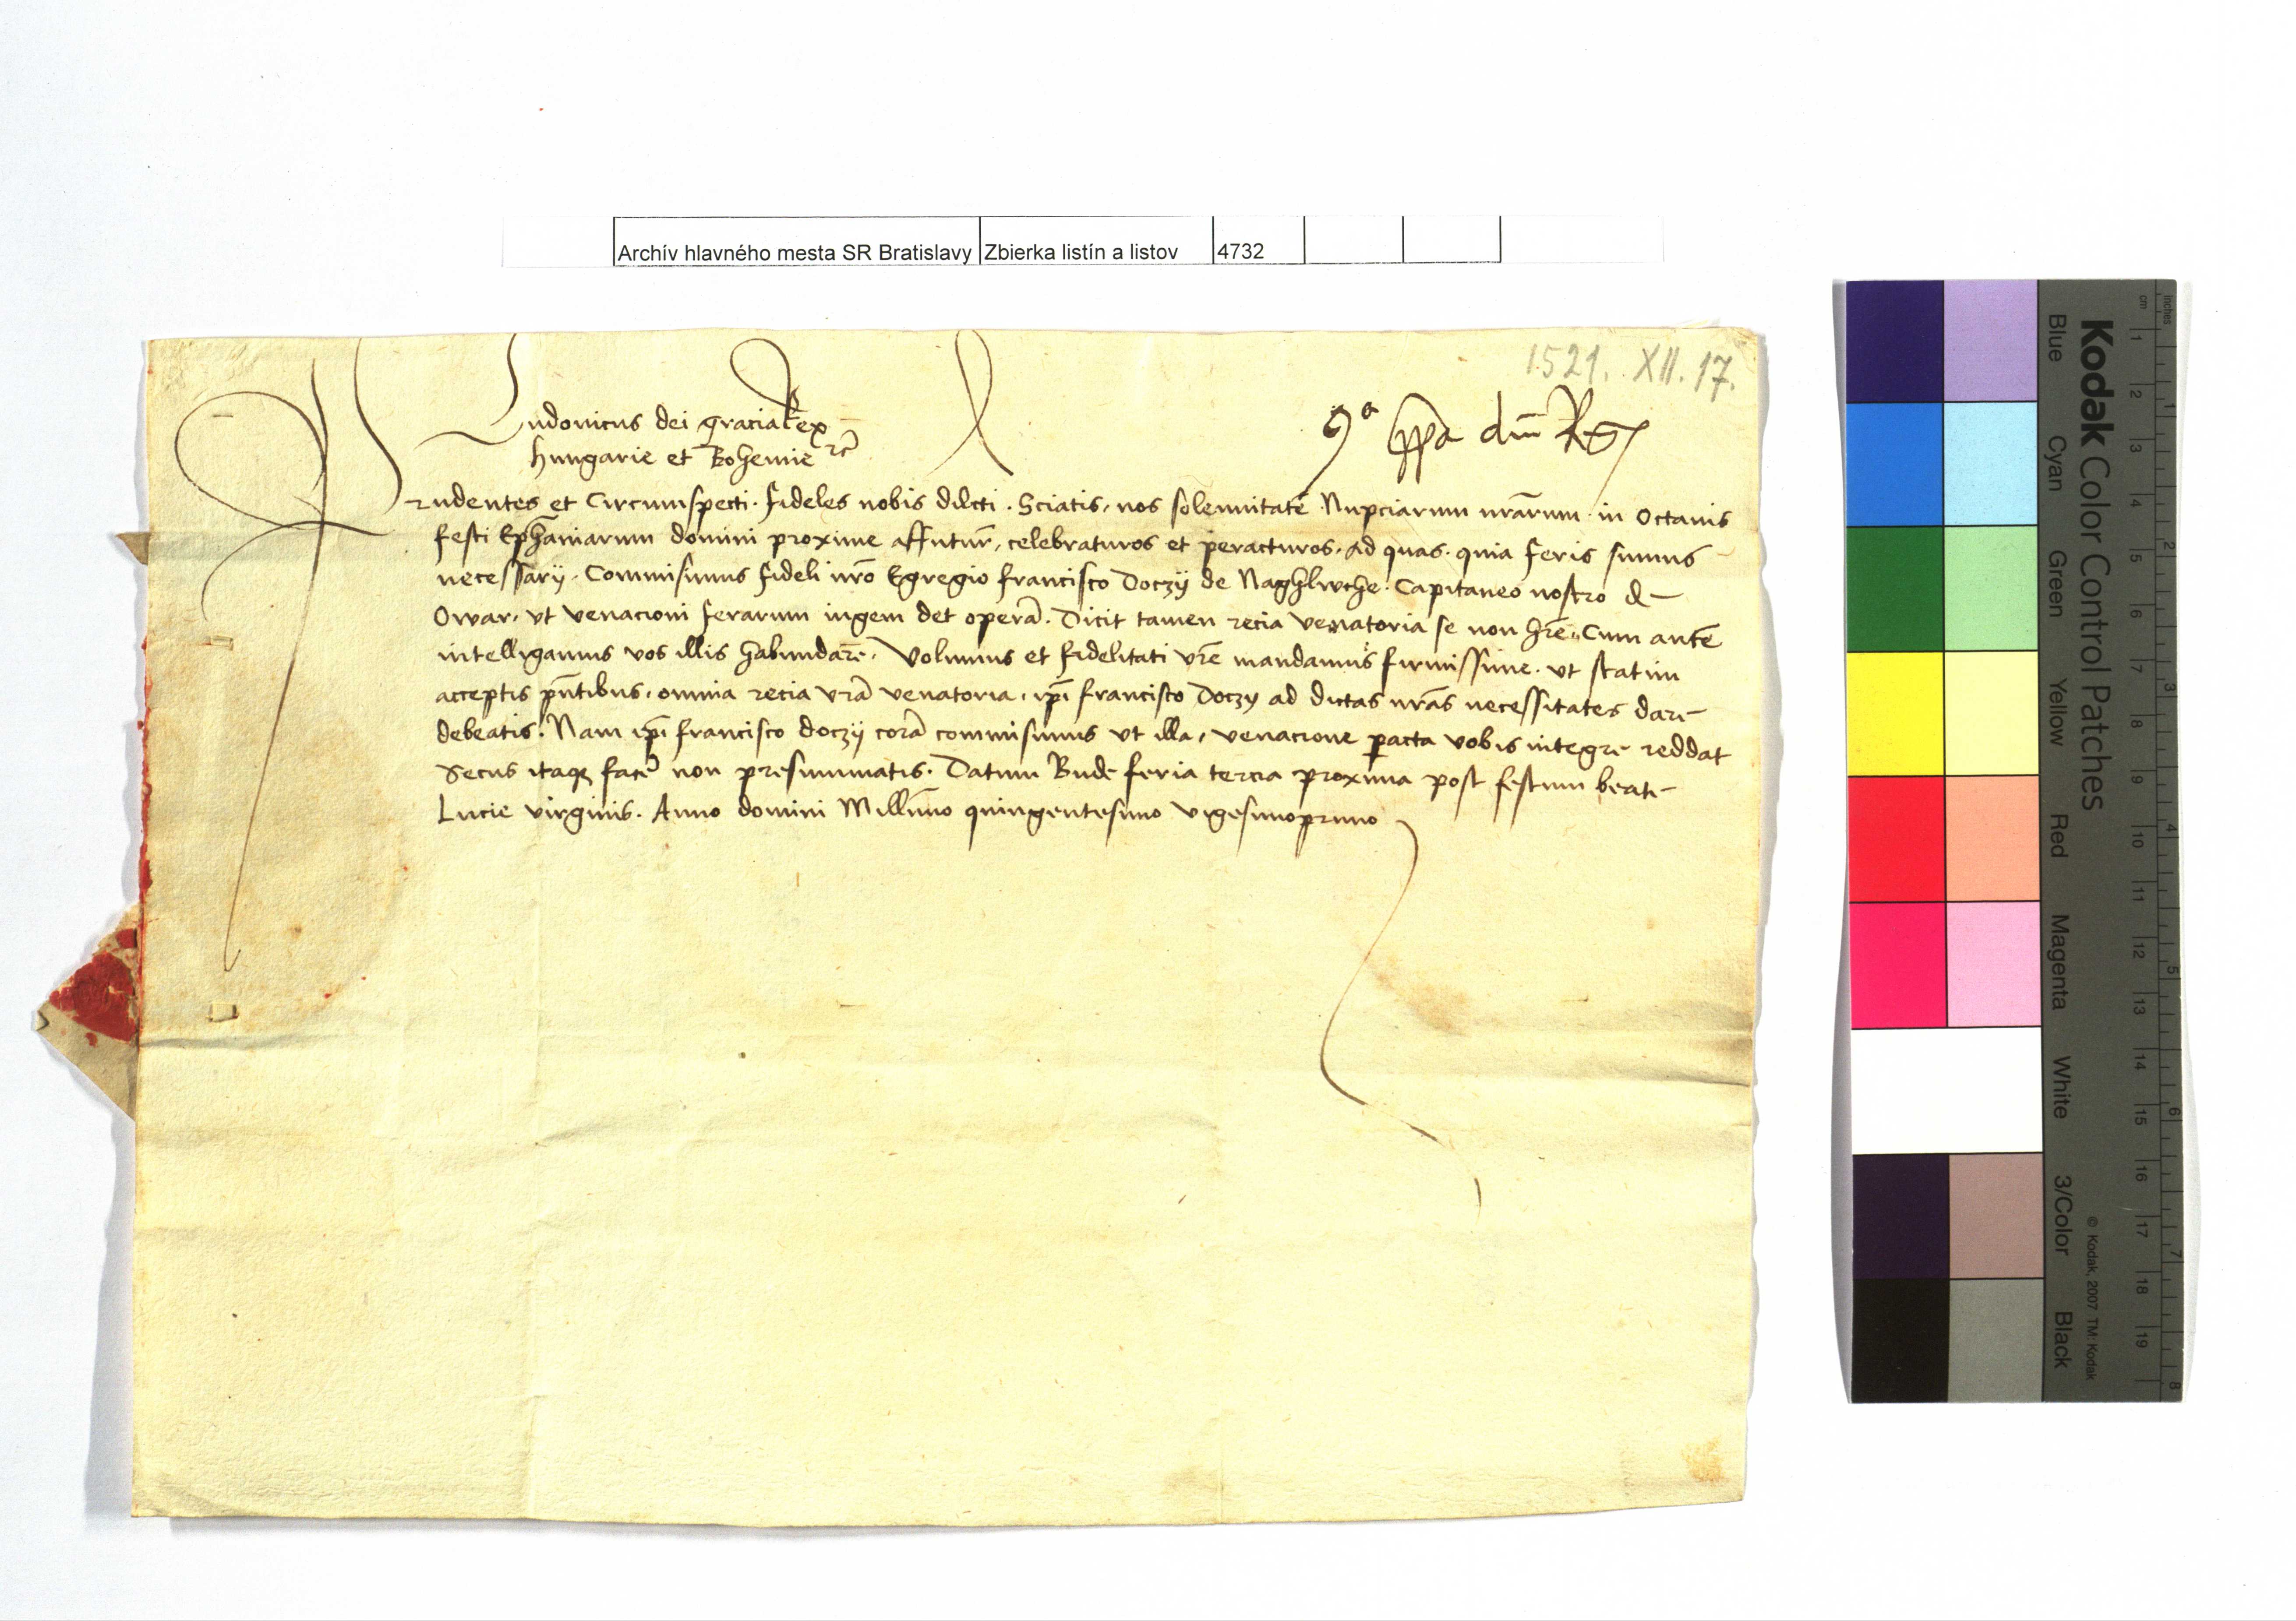 Archív hlavného mesta SR Bratislavy Zbierka listín a listov 4732
1521. XII. 17.
Ludouicus dei gracia Rex
Hungarie et Bohemie etc̃
Cõ ppa dnĩ Reg
Prudentes et Circumspecti. fideles nobis dilcti. Sciatis, nos solennitatē Nupciarum nr̄arum in Octauis
festi Eph̄aniarum domini proxime affutur̃, celebraturos et peracturos. Ad quas. quia feris sumus
necessarÿ. Commisimus fideli nrō Egregio francisco Doczÿ de Naghlwche. Capitaneo nostro de
Owar. vt venacioni ferarum ingem det operã. Dicit tamen recia venatoria se non hr̄e. Cum autē
intelligamus vos illis habundare. Volumus et fidelitati vr̄e mandamus firmissime. vt statim
acceptis pn̄tibus. omnia recia vr̄a venatoria. ip̄i francisco Doczy ad dictas nr̄as necessitates dare
debeatis. Nam ip̄i francisco doczÿ corã commisimus vt illa, venacione peracta vobis integre reddat
Secus itaqꝫ facẽ non presummatis. Datum Bude feria tercia proxima post festum beate
Lucie virginis. Anno domini Millm̄o quingentesimo vigesimoprimo
Kodak Color Control Patches
Blue Cyan Green Yellow Red Magenta White 3/Color Black
© Kodak, 2007 TM: Kodak
inches 1 2 3 4 5 6 7 8
cm 1 2 3 4 5 6 7 8 9 10 11 12 13 14 15 16 17 18 19